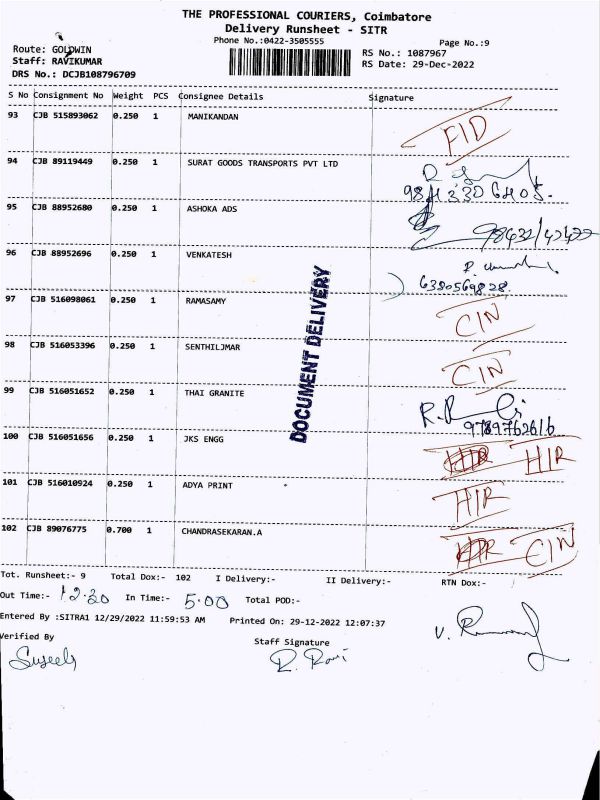 THE PROFESSIONAL COURIERS, Coimbatore
Delivery Runsheet - SITR
Phone No.:0422-3505555
Page No.:9
Route: GOLDWIN
RS No.: 1087967
Staff: RAVIKUMAR
RS Date: 29-Dec-2022
DRS No.: DCJB108796709
S No Consignment No Weight PCS Consignee Details Signature
93 CJB 515893062 0.250 1 MANIKANDAN FID
94 CJB 89119449 0.250 1 SURAT GOODS TRANSPORTS PVT LTD
95 CJB 88952680 0.250 1 ASHOKA ADS
96 CJB 88952696 0.250 1 VENKATESH
6380569828
97 CJB 516098061 0.250 1 RAMASAMY CIN
98 CJB 516053396 0.250 1 SENTHILJMAR CIN
99 CJB 516051652 0.250 1 THAI GRANITE
9789762616
100 CJB 516051656 0.250 1 JKS ENGG HIR
101 CJB 516010924 0.250 1 ADYA PRINT HIR
102 CJB 89076775 0.700 1 CHANDRASEKARAN.A CIN
DOCUMENT DELIVERY
Tot. Runsheet:- 9 Total Dox:- 102 I Delivery:- II Delivery:- RTN Dox:-
Out Time:- 12.30 In Time:- 5.00 Total POD:-
Entered By :SITRA1 12/29/2022 11:59:53 AM Printed On: 29-12-2022 12:07:37
Verified By Staff Signature
R. Ravi